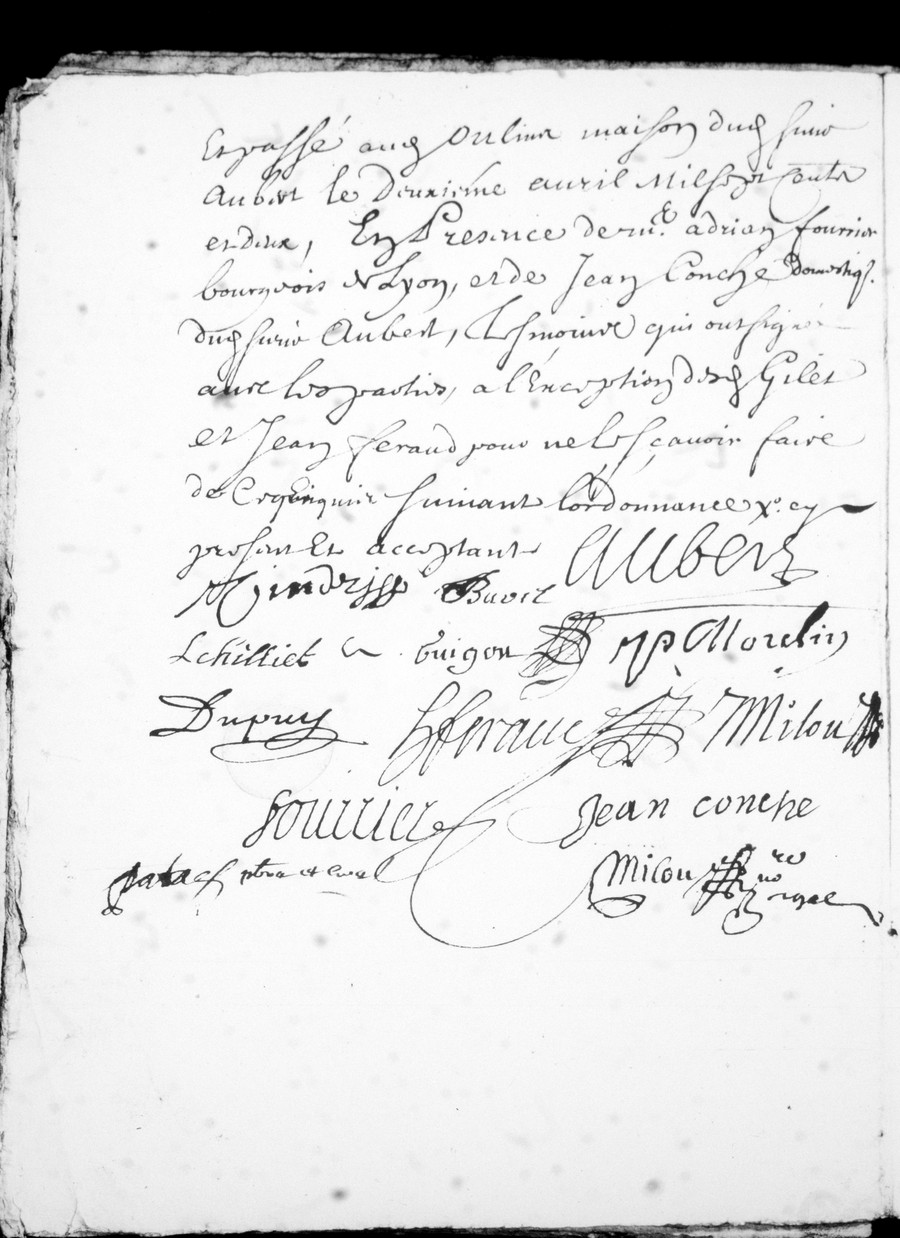 Et passé aud Oulins maison dud sieur
Aubert le deuxiéme auril Mil sept Cents
et deux, En Presence de mr. adrian fourrier
bourgeois de Lyon, et de Jean Conche domestiq.
dud sieur Aubert, tesmoins qui ont signé
auec les parties, a l'Exception desd Gilet
et Jean feraud pour ne le sçauoir faire
de ce enquis suiuant l'ordonnance
present Et acceptant Aubert
Buvit
Lchilliet Guigou Morelin
Dupuy feraud Milou
fourrier Jean conche
Milou no re
royal